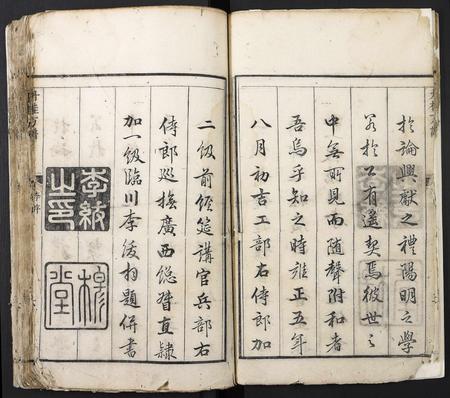 於論興獻之禮陽明之學
若於公有遥契焉彼世之
中無所見而随聲附和者
吾烏乎知之時雍正五年
八月初吉工部右侍郎加
二級前經筵講官兵部右
侍郎巡撫廣西總督直隷
加一級臨川李紱拜題併書
李紱之印
穆堂